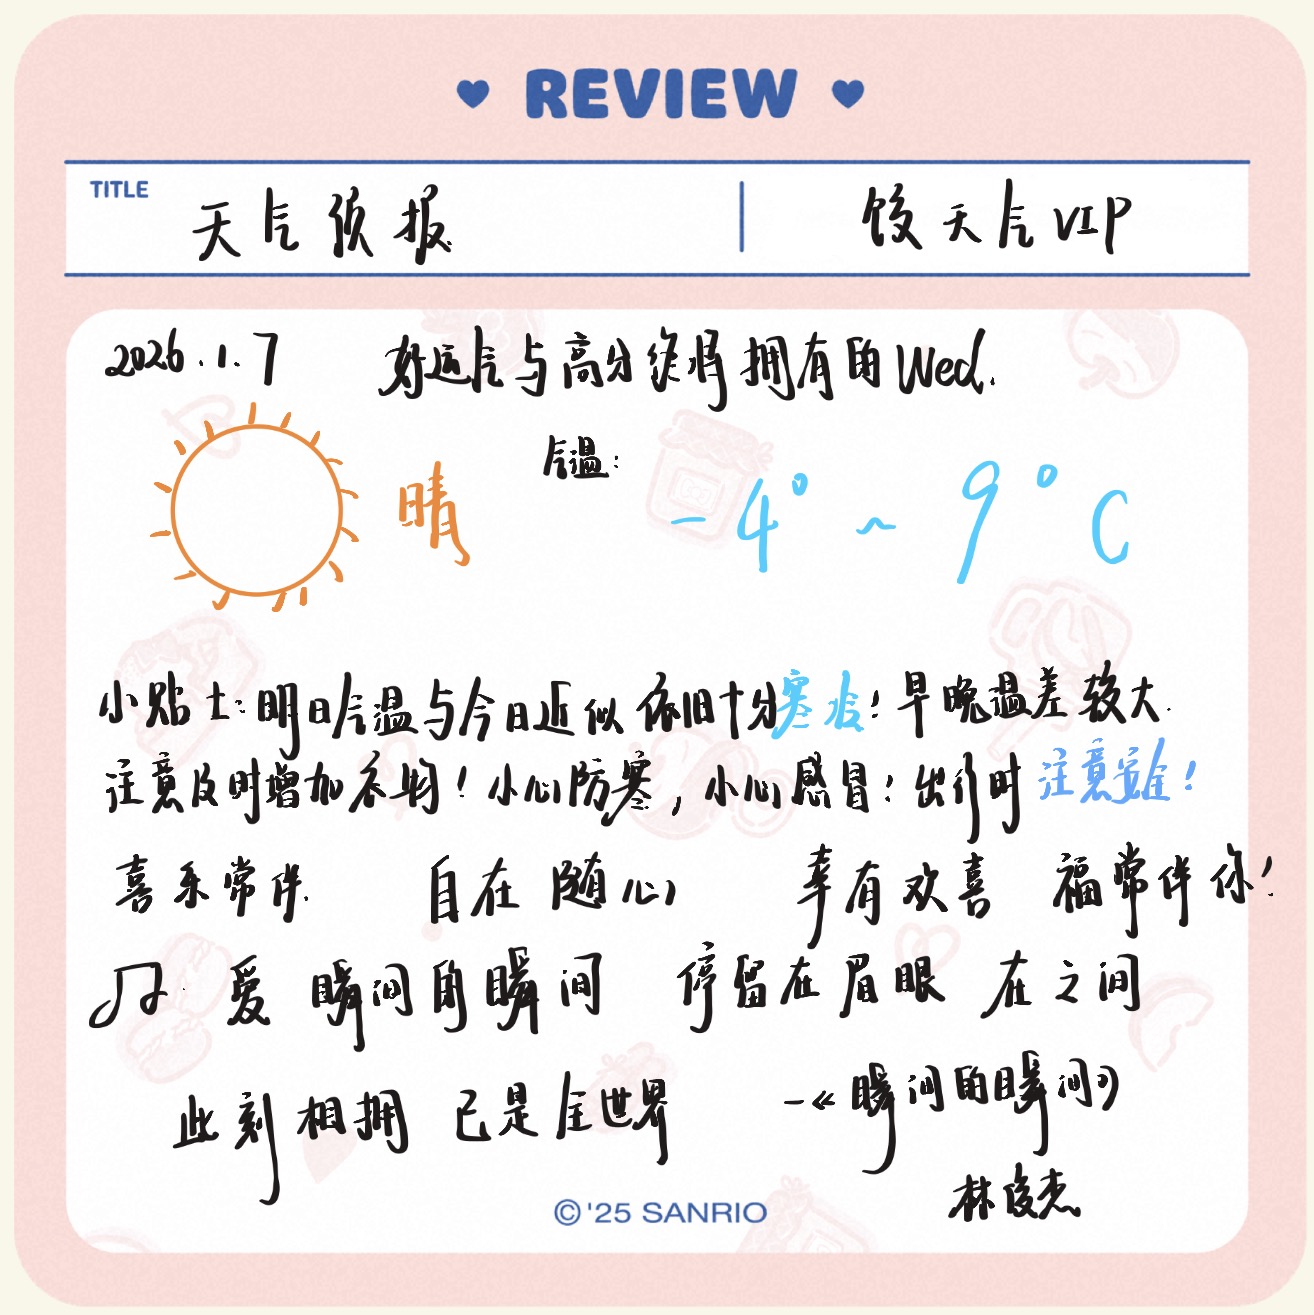 REVIEW
TITLE 天气预报 饺天气VIP
2026.1.7 好运气与高分终将拥有的Wed.
气温:
晴 -4° ~ 9°C
小贴士:明日气温与今日近似 依旧十分寒冷!早晚温差较大.
注意及时增加衣物!小心防寒,小心感冒!出行时注意安全!
喜乐常伴. 自在随心 幸有欢喜 福常伴你!
♫ 爱 瞬间的瞬间 停留在眉眼 在之间
此刻相拥 已是全世界 —《瞬间的瞬间》
林俊杰
©'25 SANRIO